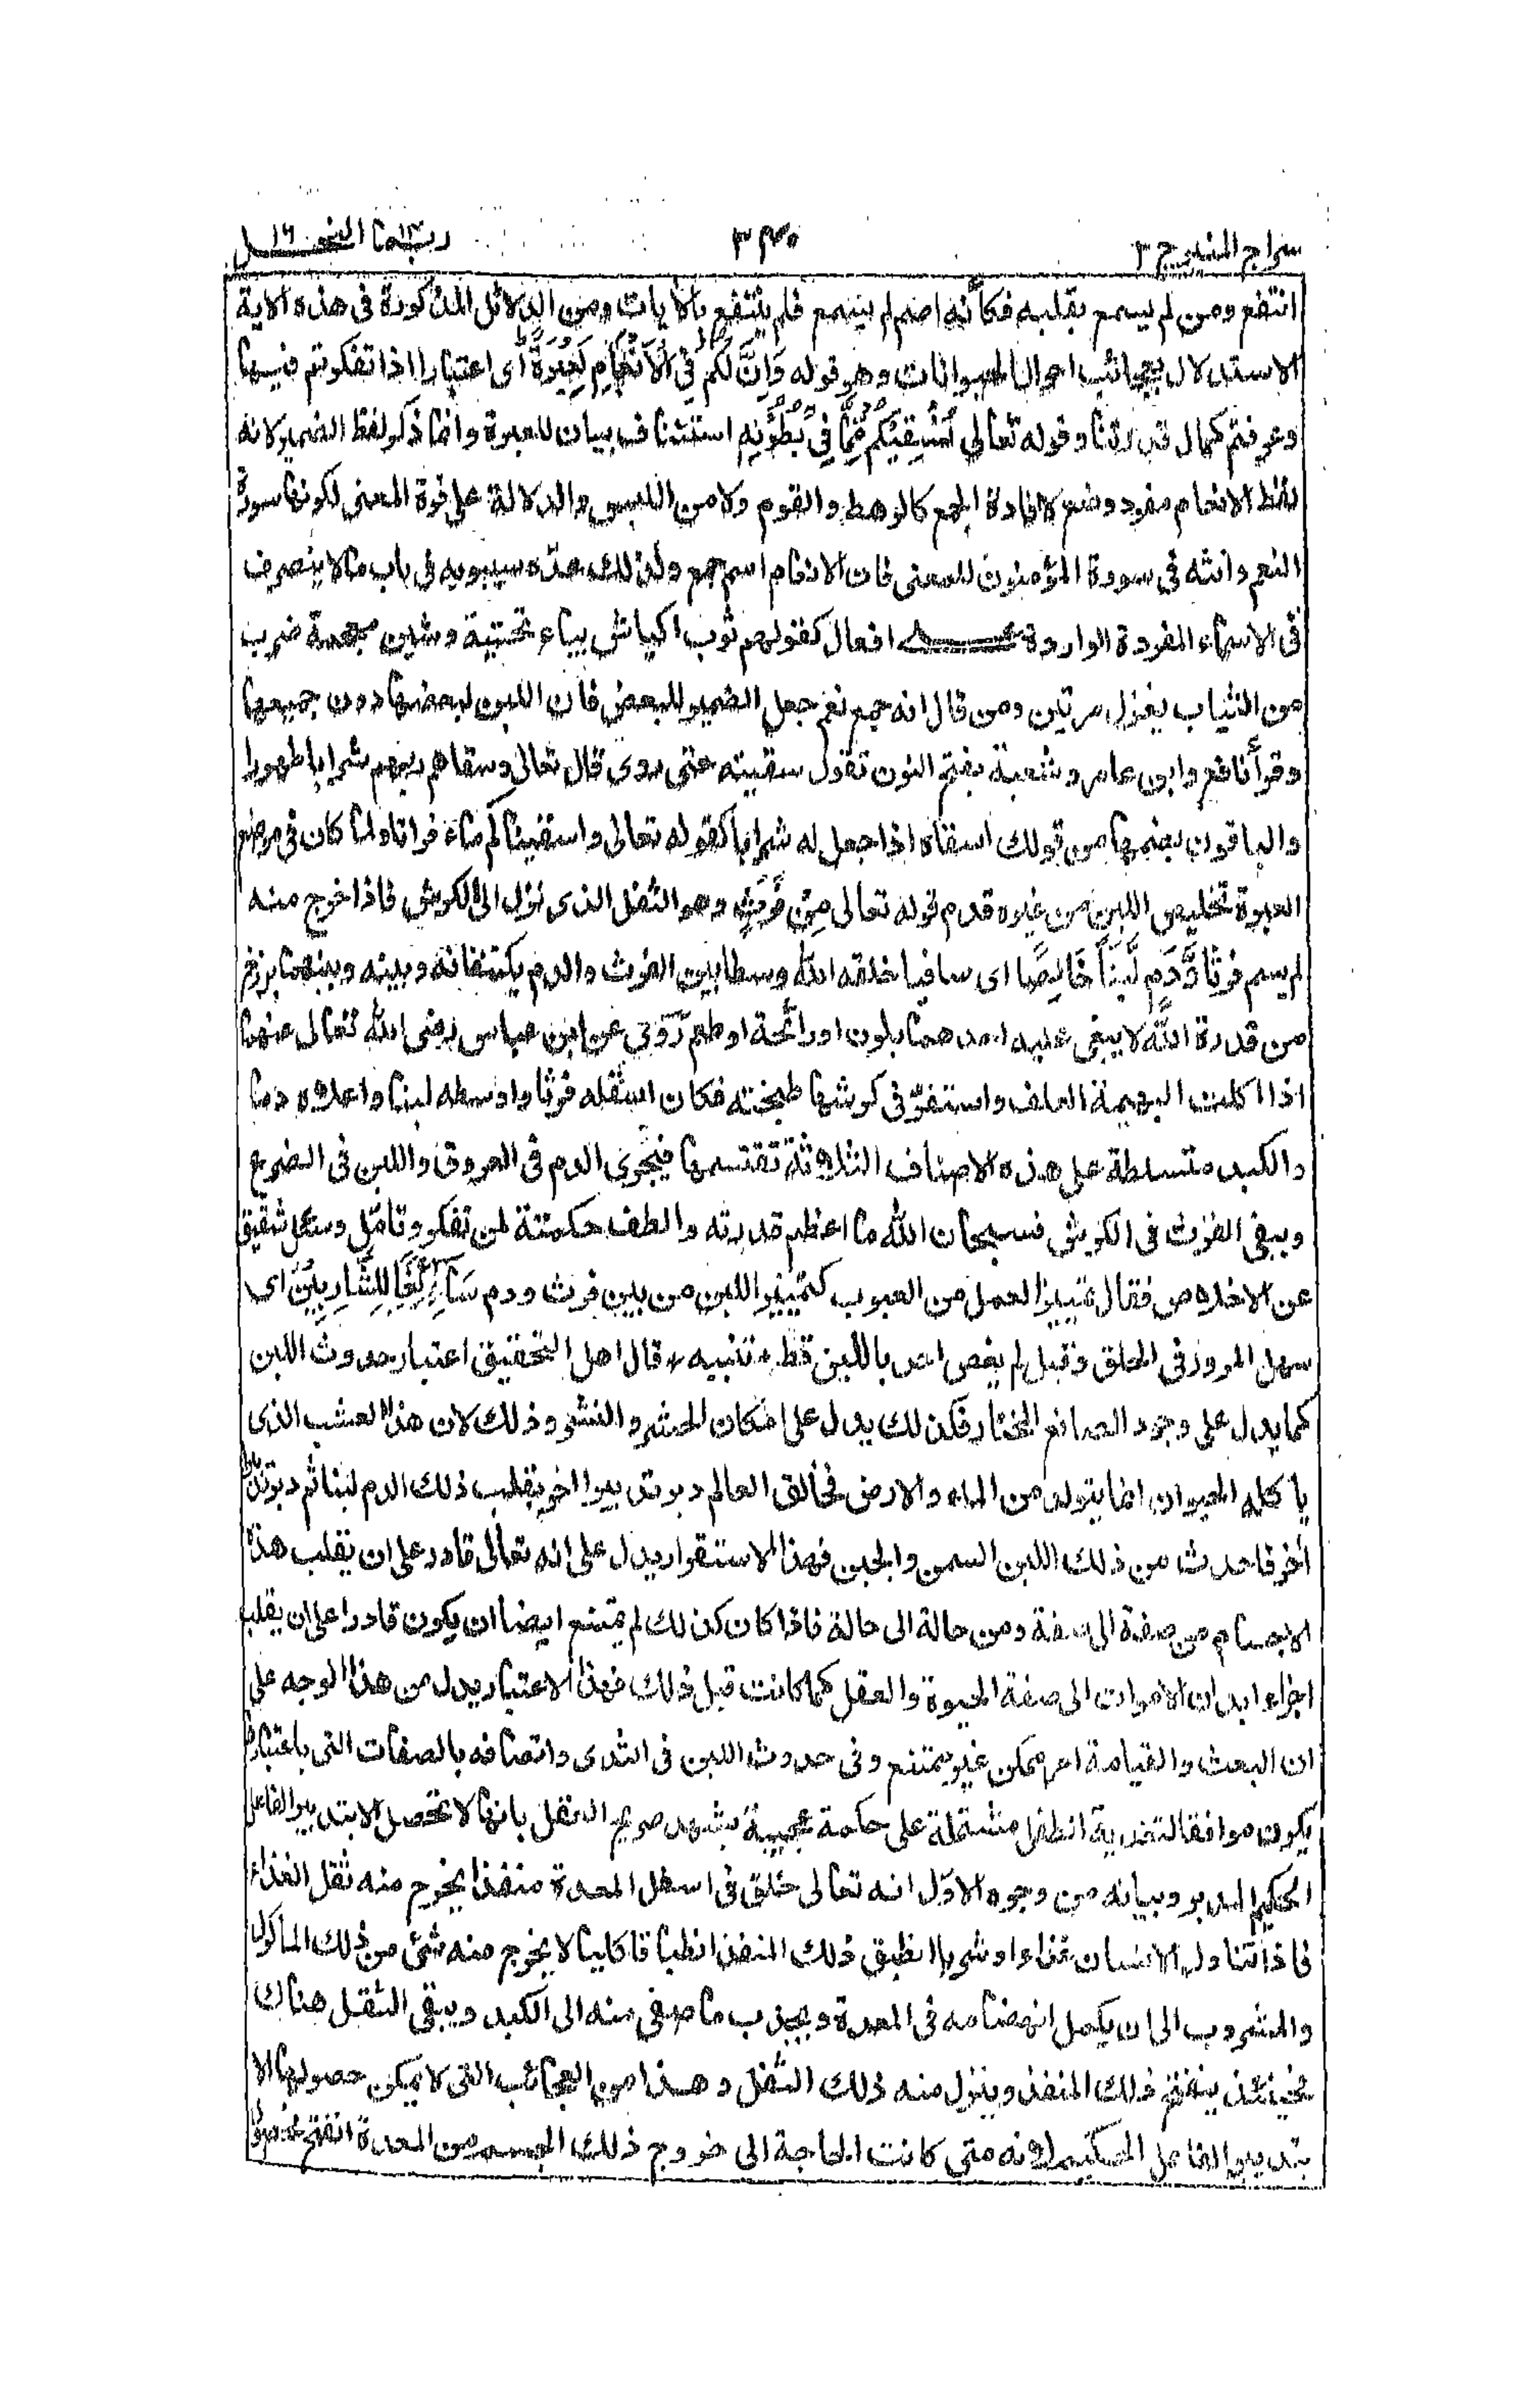 سراج المنير ج ٣
٣٤٠
ربما ١٤ النحل ١٦
انتفع ومن لم يسمع بقلبه فكأنه اصم لم يسمع فلم ينتفع بالايات ومن الدلائل المذكورة فى هذه الاية
الاستدلال بعجائب احوال الحيوانات وهو قوله وَاِنَّ لَكُمْ فِى الْاَنْعَامِ لَعِبْرَةً اى اعتبارا اذا تفكرتم فيها
وعرفتم كمال قدرتنا وقوله تعالى نُسْقِيْكُمْ مِّمَّا فِىْ بُطُوْنِهٖ استئناف ببيان للعبرة وانما ذكر لفظ الضمير لانه
لفظ الانعام مفرد وضع لافادة الجمع كالرهط والقوم ولامن اللبس والدلالة على قوة المعنى لكونها سورة
النعم وانثه فى سورة المؤمنون للمعنى فان الانعام اسم جمع ولذلك عده سيبويه فى باب مالا ينصرف
فى الاسماء المفردة الواردة على افعال كقولهم ثوب اكياش بياء تحتية وشين معجمة ضرب
من الثياب يغزل مرتين ومن قال انه جمع نعم جعل الضمير للبعض فان اللبن لبعضها دون جميعها
وقرأ نافع وابن عامر وشعبة بفتح النون تقول سقيته حتى روى قال تعالى وسقاهم ربهم شرابا طهورا
والباقون بضمها من قولك اسقاه اذا جعل له شرابا كقوله تعالى واسقيناكم ماء فراتا ولما كان فى موضع
العبرة تخليص اللبن من غيره قدم قوله تعالى مِنْۢ بَيْنِ فَرْثٍ وهو الثفل الذى نزل الى الكرش فاذا خرج منه
لم يسم فرثا وَّدَمٍ لَّبَنًا خَالِصًا اى صافيا خلقه الله وسطا بين الفرث والدم يكتنفانه وبينه وبينهما برزخ
من قدرة الله لا يبغى عليه احدهما بلون او رائحة او طعم رُوِىَ عن ابن عباس رضى الله تعالى عنهما
اذا اكلت البهيمة العلف واستقر فى كرشها طبخته فكان اسفله فرثا واوسطه لبنا واعلاه دما
والكبد متسلطة على هذه الاصناف الثلاثة تقتسمها فيجرى الدم فى العروق واللبن فى الضرع
ويبقى الفرث فى الكرش فسبحان الله ما اعظم قدرته والطف حكمته لمن تفكر وتأمل وسئل شقيق
عن الاخلاص فقال تمييز العمل من العيوب كتمييز اللبن من بين فرث ودم سَآئِغًا لِّلشَّارِبِيْنَ اى
سهل المرور فى الحلق وقيل لم يغص احد باللبن قط * تنبيه * قال اهل التحقيق اعتبار حدوث اللبن
كما يدل على وجود الصانع المختار فكذلك يدل على امكان الحشر والنشر وذلك لان هذا العشب الذى
يأكله الحيوان انما يتولد من الماء والارض فخالق العالم دبر تدبيرا اخر يقلب ذلك الدم لبنا ثم دبر تدبيرا
أخر فاحدث من ذلك اللبن السمن والجبن فهذا الاستقرار يدل على انه تعالى قادر على ان يقلب هذه
الاجسام من صفة الى صفة ومن حالة الى حالة فاذا كان كذلك لم يمتنع ايضا ان يكون قادرا على ان يقلب
اجزاء ابدان الاموات الى صفة الحيوة والعقل كما كانت قبل ذلك فهذا الاعتبار يدل من هذا الوجه على
ان البعث والقيامة امر ممكن غير ممتنع وفى حدوث اللبن فى الثدى واتصافه بالصفات التى باعتبارها
يكون موافقا لتغذية الطفل مشتملة على حكمة عجيبة يشهد صريح العقل بانها لا تحصل الا بتدبير الفاعل
الحكيم المدبر وبيانه من وجوه الاول انه تعالى خلق فى اسفل المعدة منفذا يخرج منه ثقل الغذاء
فاذا تناول الانسان غذاء او شربا انطبق ذلك المنفذ انطباقا كليا لا يخرج منه شئ من ذلك المأكول
والمشروب الى ان يكمل انهضامه فى المعدة ويجذب ما صفى منه الى الكبد ويبقى الثقل هناك
فحينئذ ينفتح ذلك المنفذ وينزل منه ذلك الثقل وهذا من العجائب التى لا يمكن حصولها الا
بتدبير الفاعل الحكيم لانه متى كانت الحاجة الى خروج ذلك الجسم من المعدة انفتح